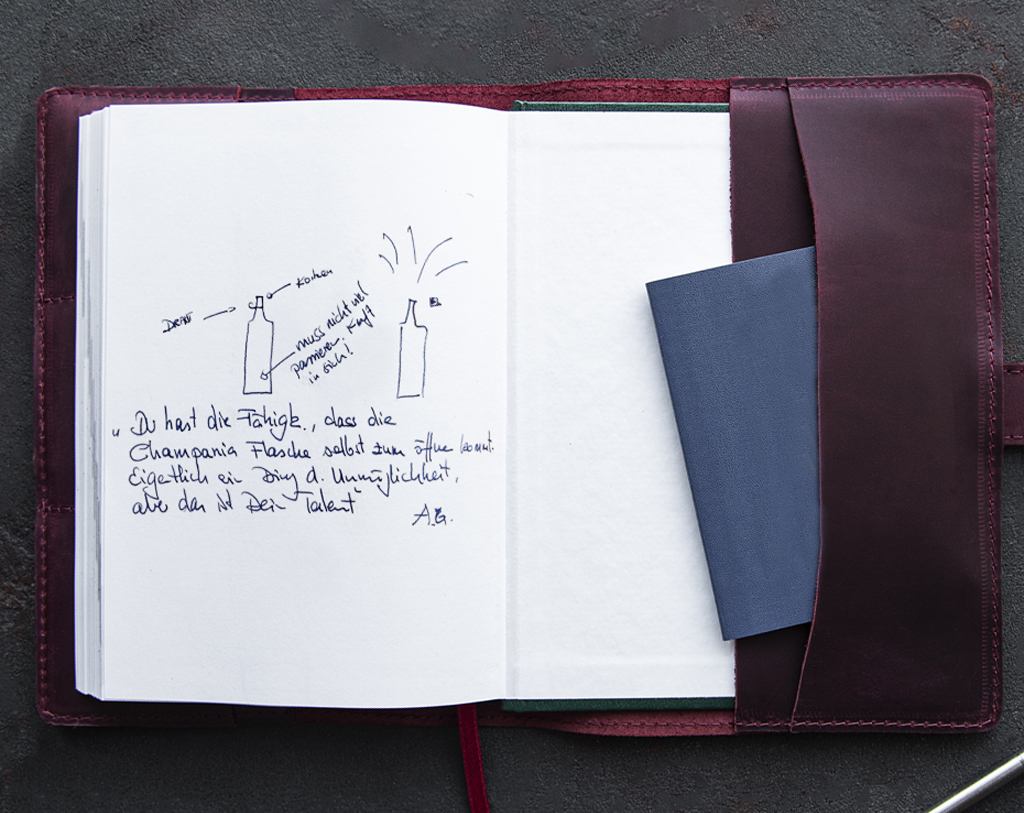 Draht
Korken
muss nicht viel
passieren, Kraft
in sich!
„Du hast die Fähigk., dass die
Champania Flasche selbst zum öffne kommt.
Eigentlich ein Ding d. Unmöglichkeit,
aber das ist Dein Talent"
A.G.